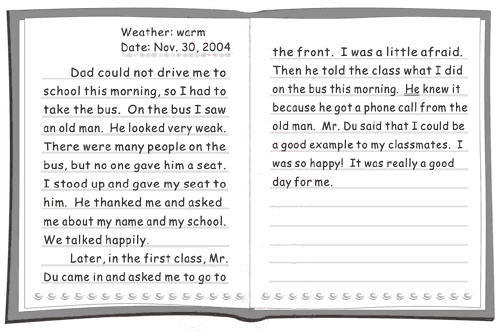 Weather: warm
Date: Nov. 30, 2004
Dad could not drive me to
school this morning, so I had to
take the bus. On the bus I saw
an old man. He looked very weak.
There were many people on the
bus, but no one gave him a seat.
I stood up and gave my seat to
him. He thanked me and asked
me about my name and my school.
We talked happily.
Later, in the first class, Mr.
Du came in and asked me to go to
the front. I was a little afraid.
Then he told the class what I did
on the bus this morning. He knew it
because he got a phone call from the
old man. Mr. Du said that I could be
a good example to my classmates. I
was so happy! It was really a good
day for me.